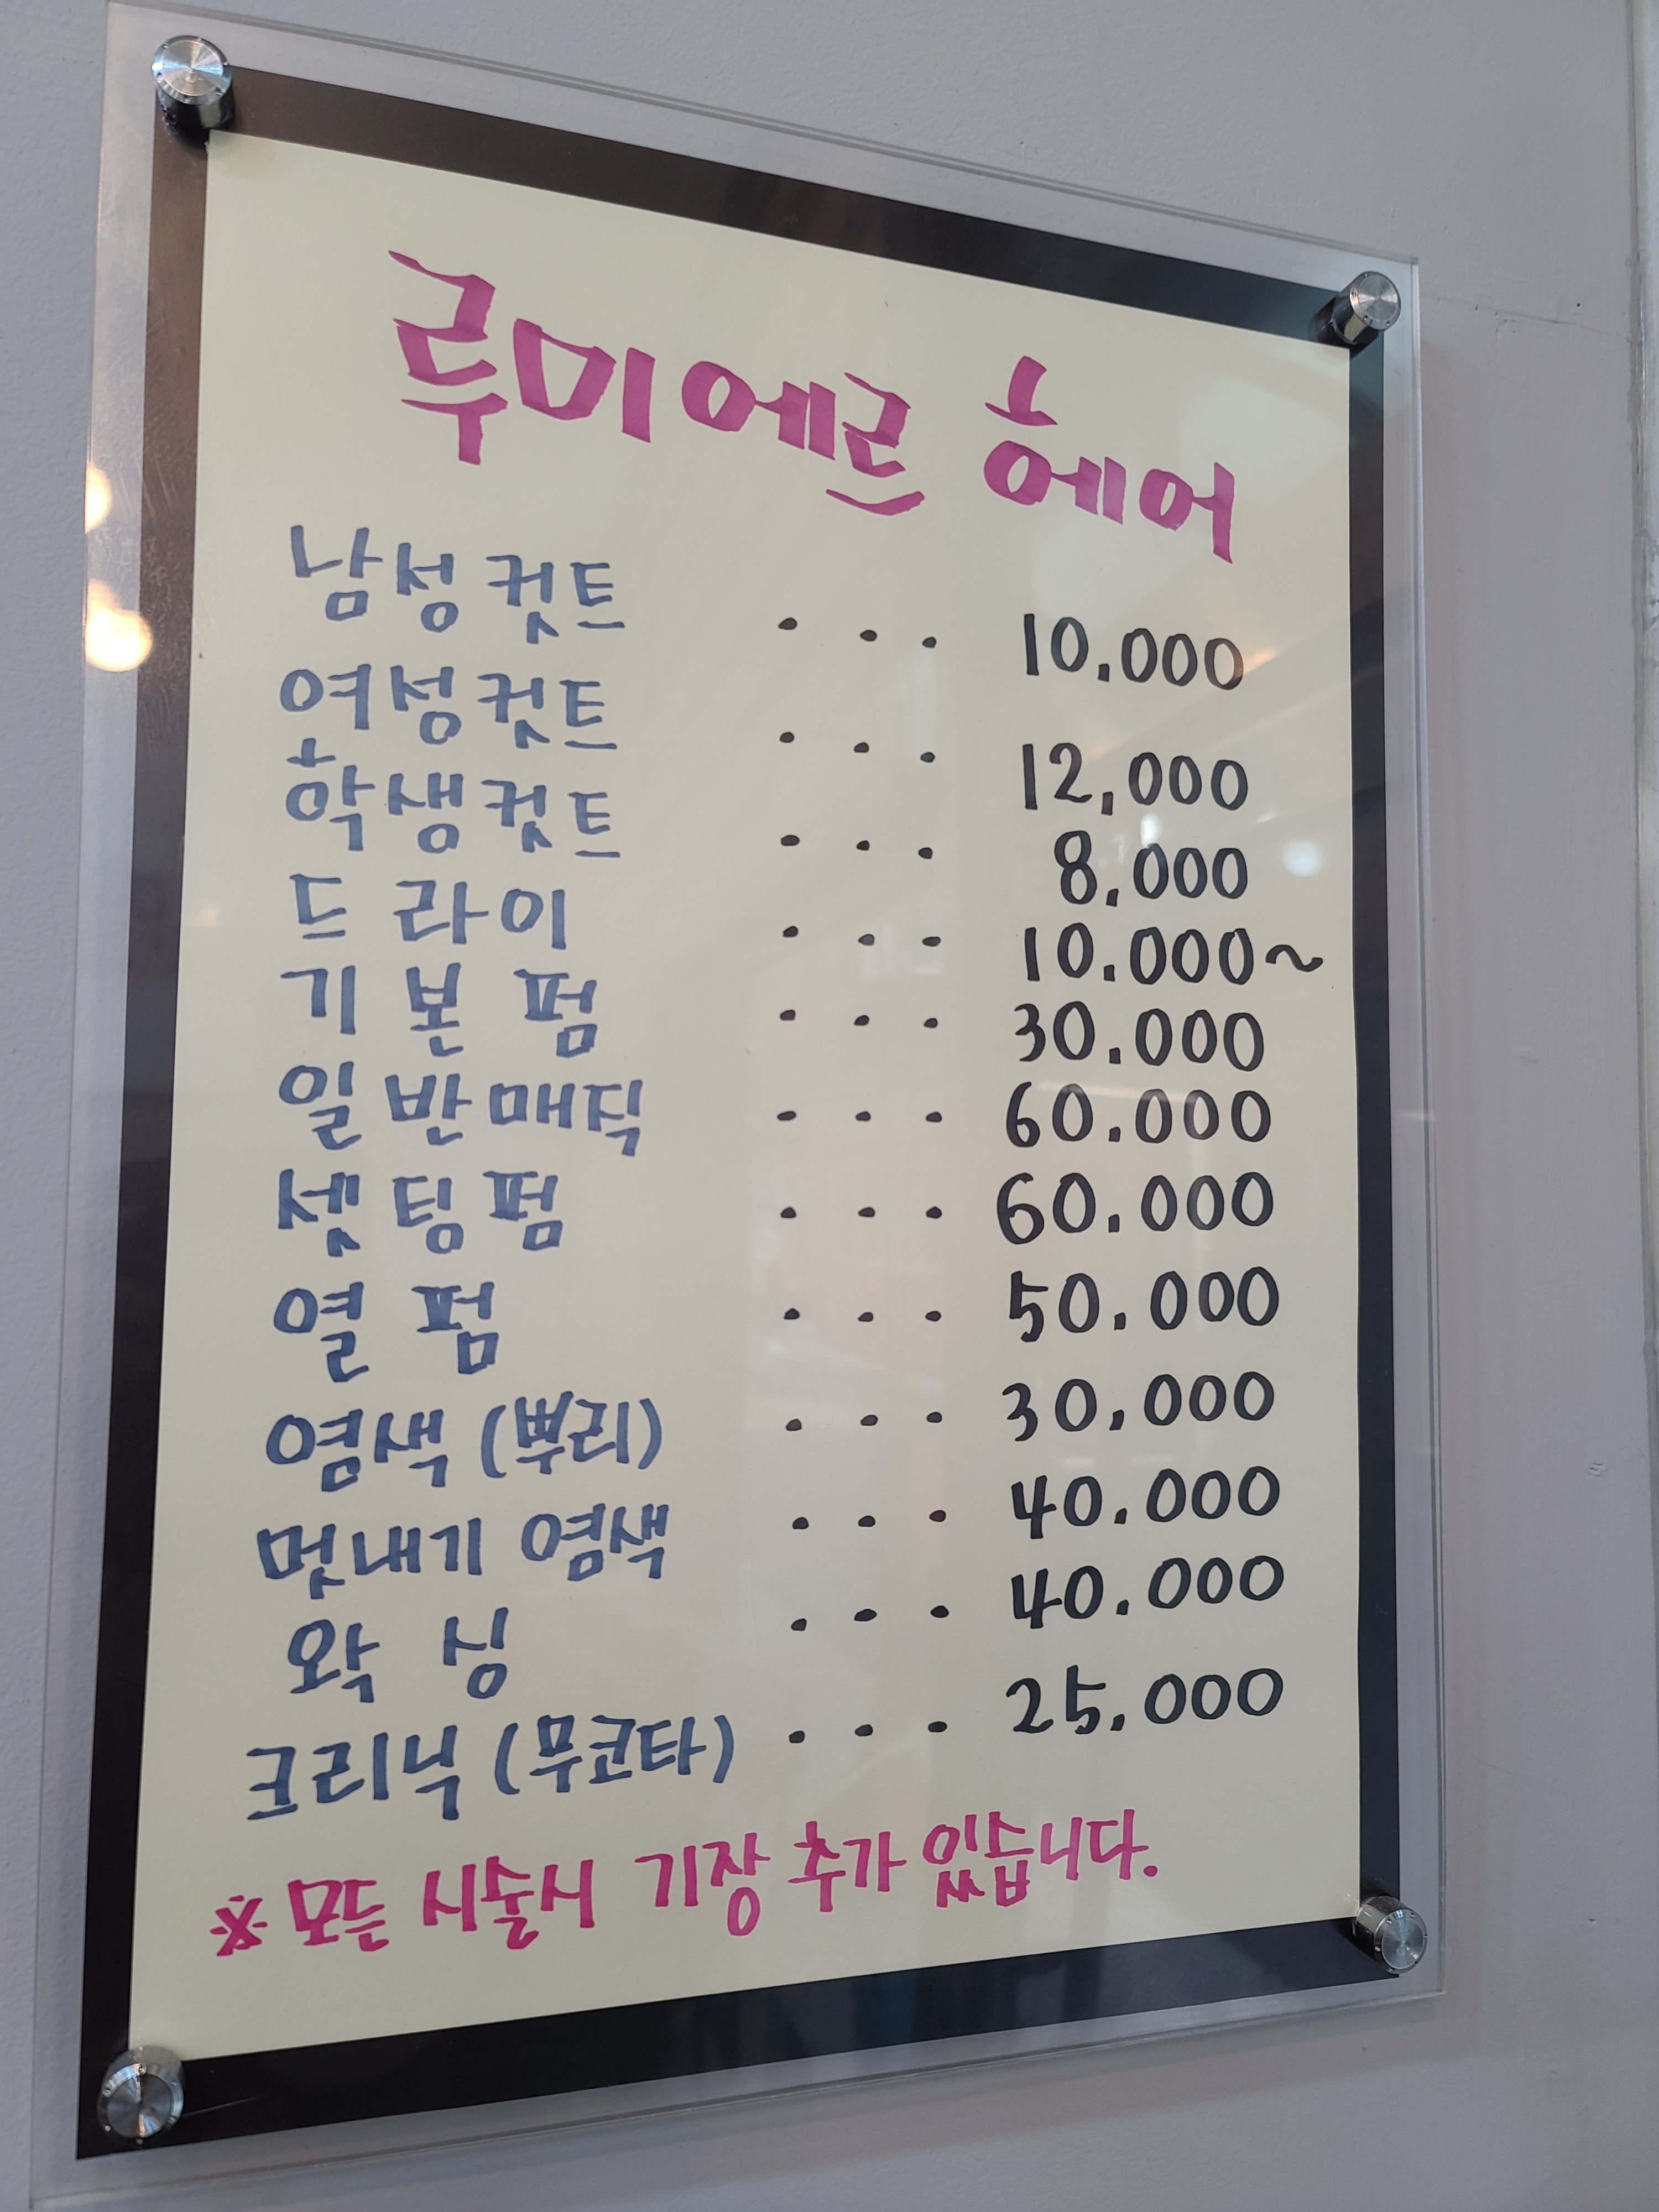 루미에르 헤어
남성컷트 ... 10,000
여성컷트 ... 12,000
학생컷트 ... 8,000
드라이 ... 10.000~
기본 펌 ... 30.000
일반매직 ... 60.000
셋팅펌 ... 60.000
열 펌 ... 50.000
염색 (뿌리) ... 30,000
멋내기 염색 ... 40.000
왁 싱 ... 40.000
크리닉 (무코타) ... 25,000
※ 모든 시술시 기장 추가 있습니다.